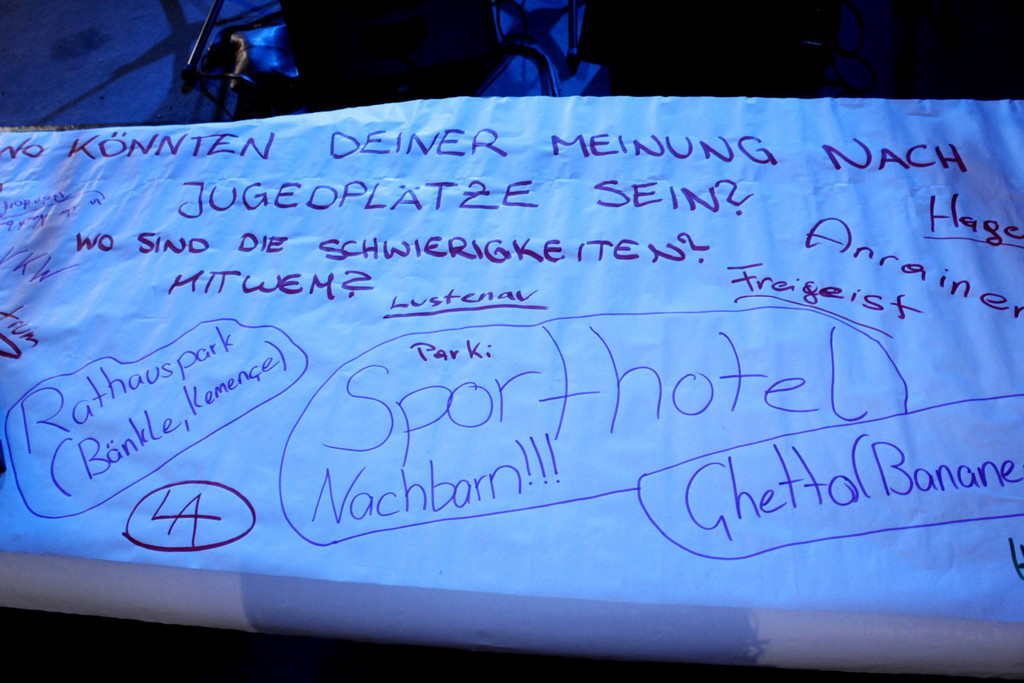 WO KÖNNTEN DEINER MEINUNG NACH
JUGEDPLÄTZE SEIN?
WO SIND DIE SCHWIERIGKEITEN?
MIT WEM?
Hage
Anrainer
Freigeist
Lustenau
VKW
Rathauspark
(Bänkle, Kemençe)
Parki
Sporthotel
Nachbarn!!!
Ghetto(Banane
LA